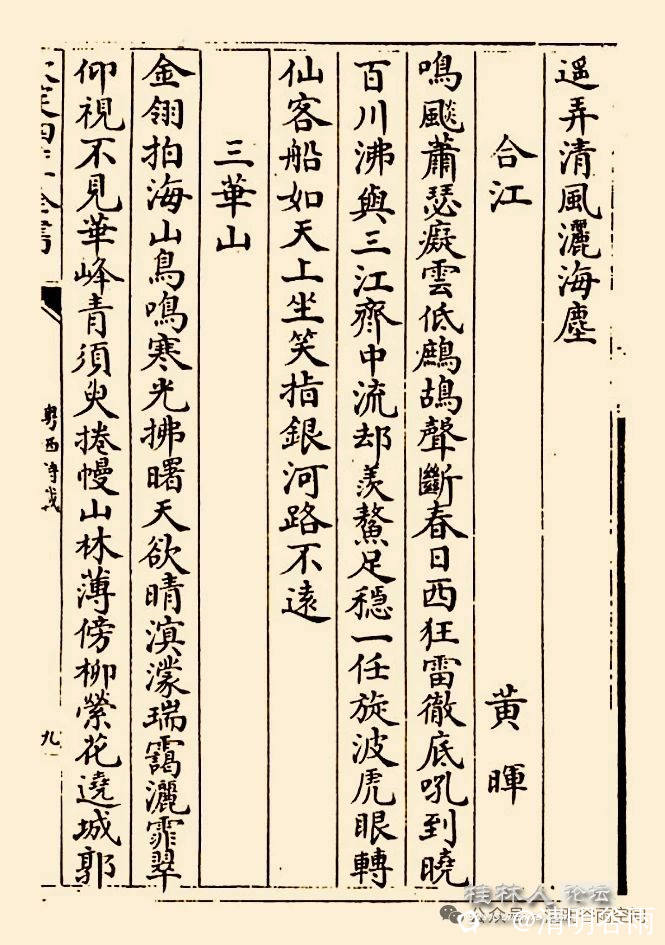 遥弄清風灑海塵
合江 黄暉
鳴飇蕭瑟癡雲低鷓鴣聲斷春日西狂雷徹底吼到曉
百川沸與三江齊中流却羨鰲足穩一任旋波虎眼轉
仙客船如天上坐笑指銀河路不遠
三華山
金翎拍海山鳥鳴寒光拂曙天欲晴溟濛瑞靄灑霏翠
仰視不見華峰青須臾捲幔山林薄傍柳縈花遶城郭
欽定四庫全書 粤西詩載 九
桂林人论坛
公众号
@清明谷雨